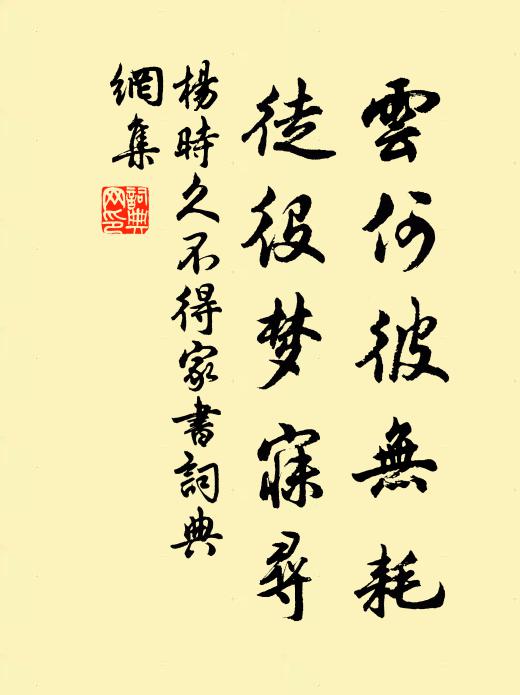 雲何彼無耗
徒役梦寐尋
楊時久不得家書詞典
網集
詞典网印